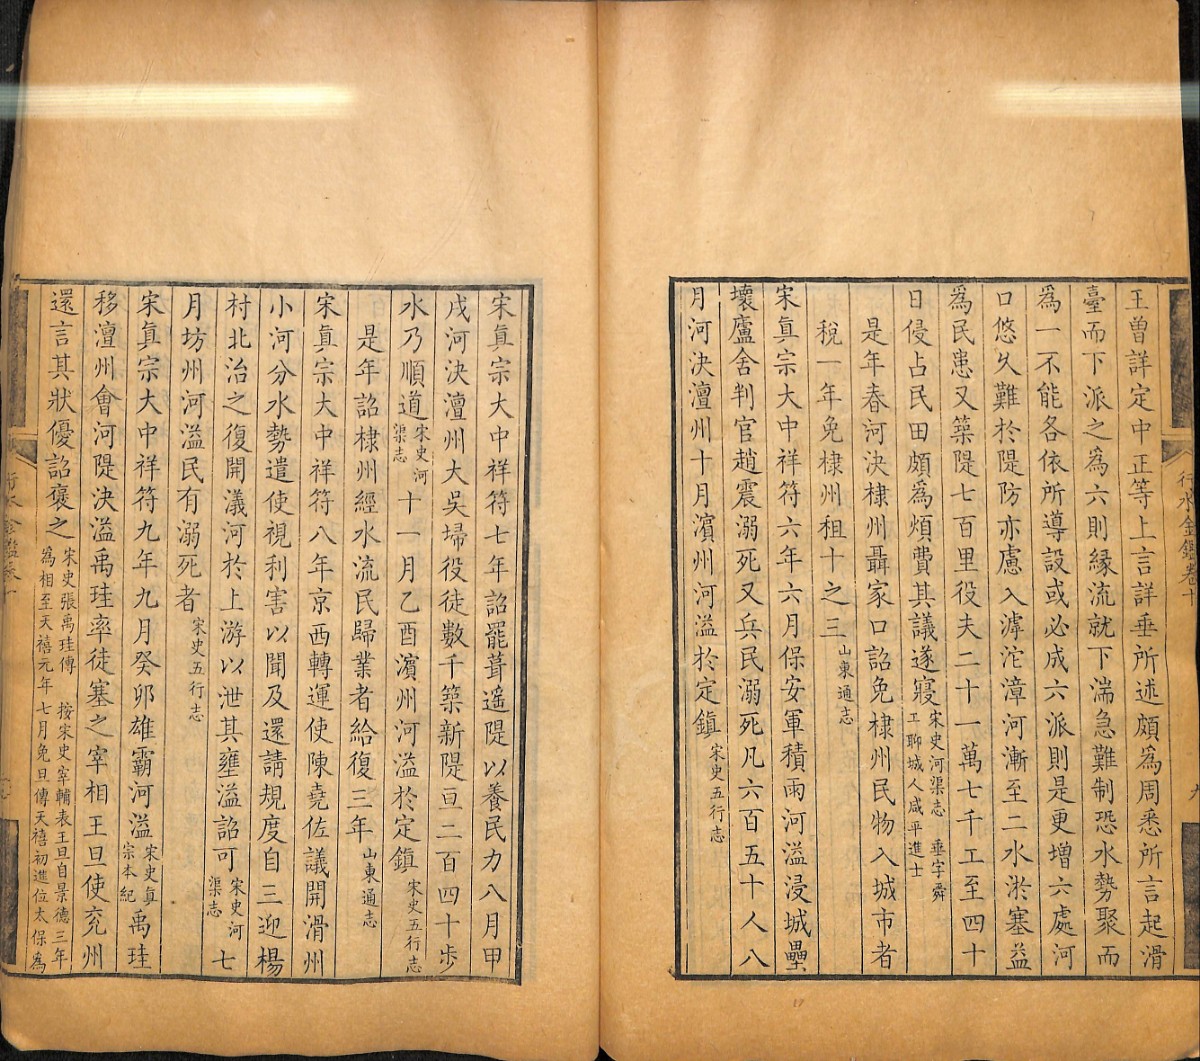 王曾詳定中正等上言詳垂所述頗爲周悉所言起滑
臺而下派之爲六則緣流就下湍急難制恐水勢聚而
爲一不能各依所導設或必成六派則是更增六處河
口悠久難於隄防亦慮入滹沱漳河漸至二水淤塞益
爲民患又築隄七百里役夫二十一萬七千工至四十
日侵占民田頗爲煩費其議遂寢宋史河渠志 垂字舜
工聊城人咸平進士
是年春河決棣州聶家口詔免棣州民物入城市者
稅一年免棣州租十之三山東通志
宋眞宗大中祥符六年六月保安軍積雨河溢浸城壘
壞廬舍判官趙震溺死又兵民溺死凡六百五十人八
月河決澶州十月濱州河溢於定鎭宋史五行志
行水金鑑卷十
九
宋眞宗大中祥符七年詔罷葺遥隄以養民力八月甲
戌河決澶州大吳埽役徒數千築新隄亘二百四十步
水乃順道宋史河
渠志十一月乙酉濱州河溢於定鎭宋史五行志
是年詔棣州經水流民歸業者給復三年山東通志
宋眞宗大中祥符八年京西轉運使陳堯佐議開滑州
小河分水勢遣使視利害以聞及還請規度自三迎楊
村北治之復開漢河於上游以泄其壅溢詔可宋史河
渠志七
月坊州河溢民有溺死者宋史五行志
宋眞宗大中祥符九年九月癸卯雄霸河溢宋史眞
宗本紀禹珪
移澶州會河隄決溢禹珪率徒塞之宰相王旦使兖州
還言其狀優詔褒之宋史張禹珪傳 按宋史宰輔表王旦自景德三年
爲相至天禧元年七月免旦傳天禧初進位太保爲